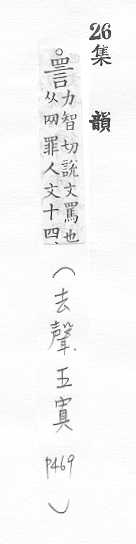 26
集韻
詈力智切說文罵也
从网罪人文十四
(去聲五寘
p469)